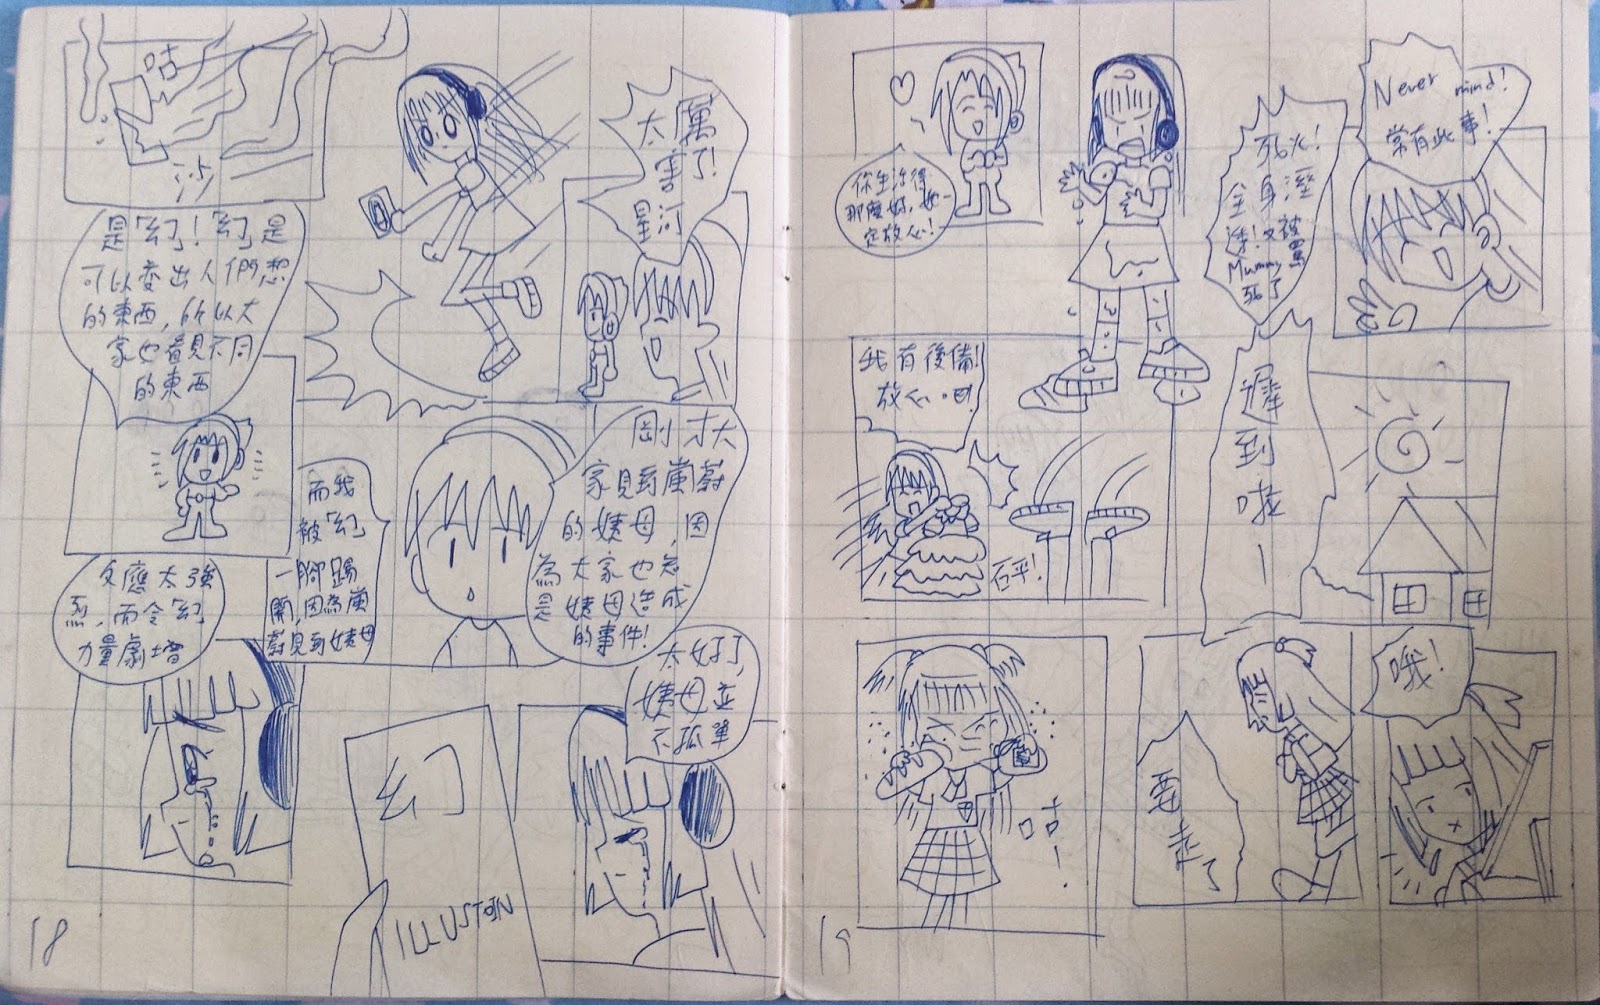 咕
太厲
害了!
星河
是「幻」!「幻」是
可以變出人們想
的東西,所以大
家也看見不同
的東西
剛才大
家見到嵐蔚
的姨母,因
為大家也知
是姨母造成
的事件!
而我
被「幻」
一腳踢
開,因為嵐
蔚見到姨母
反應太強
烈,而令「幻」
力量劇增
太好了,
姨母並
不孤單
幻
ILLUSION
18
你生活得
那麼好,她一
定放心!
死火!
全身溼
透!又被
Mummy罵
死了
Never mind!
常有此事!
我有後備!
放心吧!
砰!
遲到啦!
咕!
要走了
哦!
19